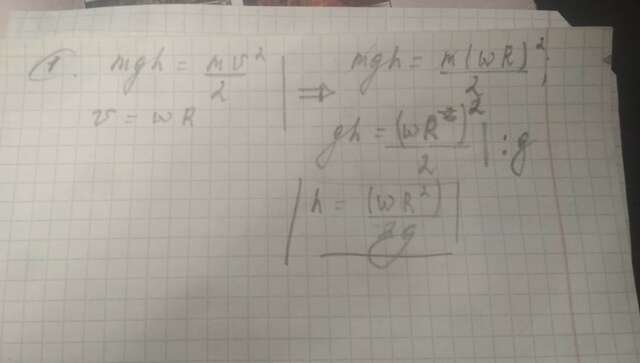 1. mgh = mv²/2 | ⇒ mgh = m(ωR)²/2
v = ωR
gh = (ωR)²/2 | : g
h = (ωR²)/2g